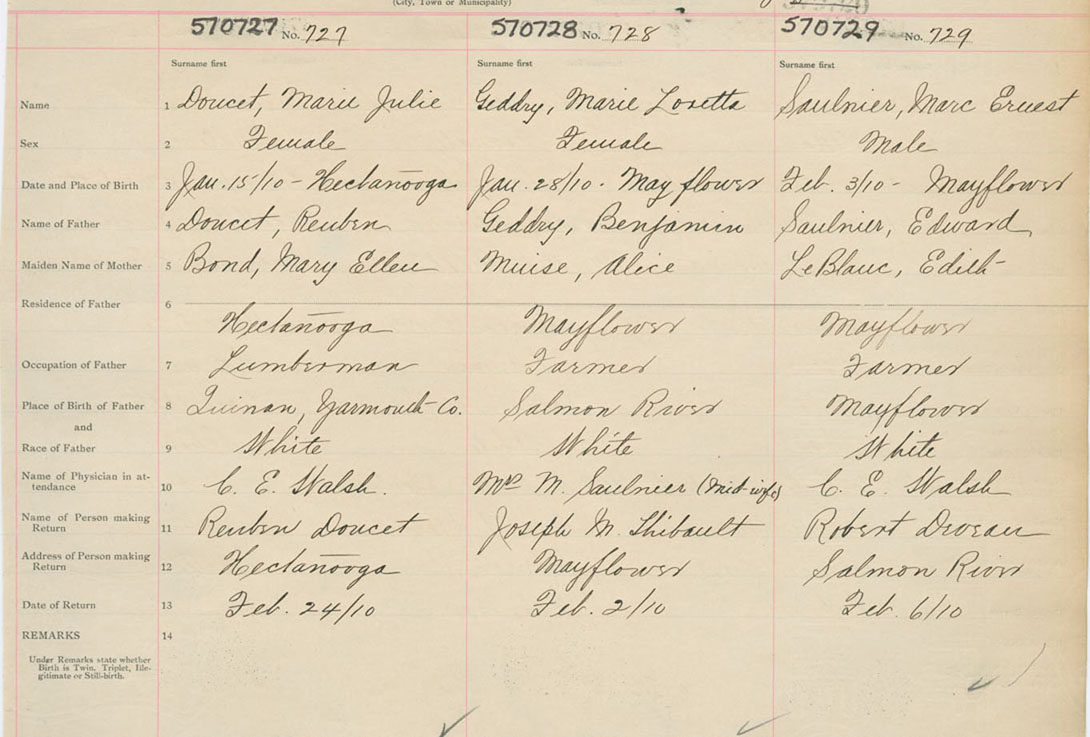 (City, Town or Municipality)
570727 No. 727 570728 No. 728 570729 No. 729
Surname first Surname first Surname first
Name 1 Doucet, Marie Julie Geddry, Marie Loretta Saulnier, Marc Ernest
Sex 2 Female Female Male
Date and Place of Birth 3 Jan. 15/10 - Hectanooga Jan. 28/10 - Mayflower Feb. 3/10 - Mayflower
Name of Father 4 Doucet, Reuben Geddry, Benjamin Saulnier, Edward
Maiden Name of Mother 5 Bond, Mary Ellen Muise, Alice LeBlanc, Edith
Residence of Father 6
Hectanooga Mayflower Mayflower
Occupation of Father 7 Lumberman Farmer Farmer
Place of Birth of Father 8 Quinan, Yarmouth Co. Salmon River Mayflower
and
Race of Father 9 White White White
Name of Physician in at-
tendance 10 C. E. Walsh. Mrs M. Saulnier (Mid-wife) C. E. Walsh
Name of Person making
Return 11 Reuben Doucet Joseph M. Thibault Robert Deveau
Address of Person making
Return 12 Hectanooga Mayflower Salmon River
Date of Return 13 Feb. 24/10 Feb. 2/10 Feb. 6/10
REMARKS 14
Under Remarks state whether
Birth is Twin. Triplet, Ille-
gitimate or Still-birth.